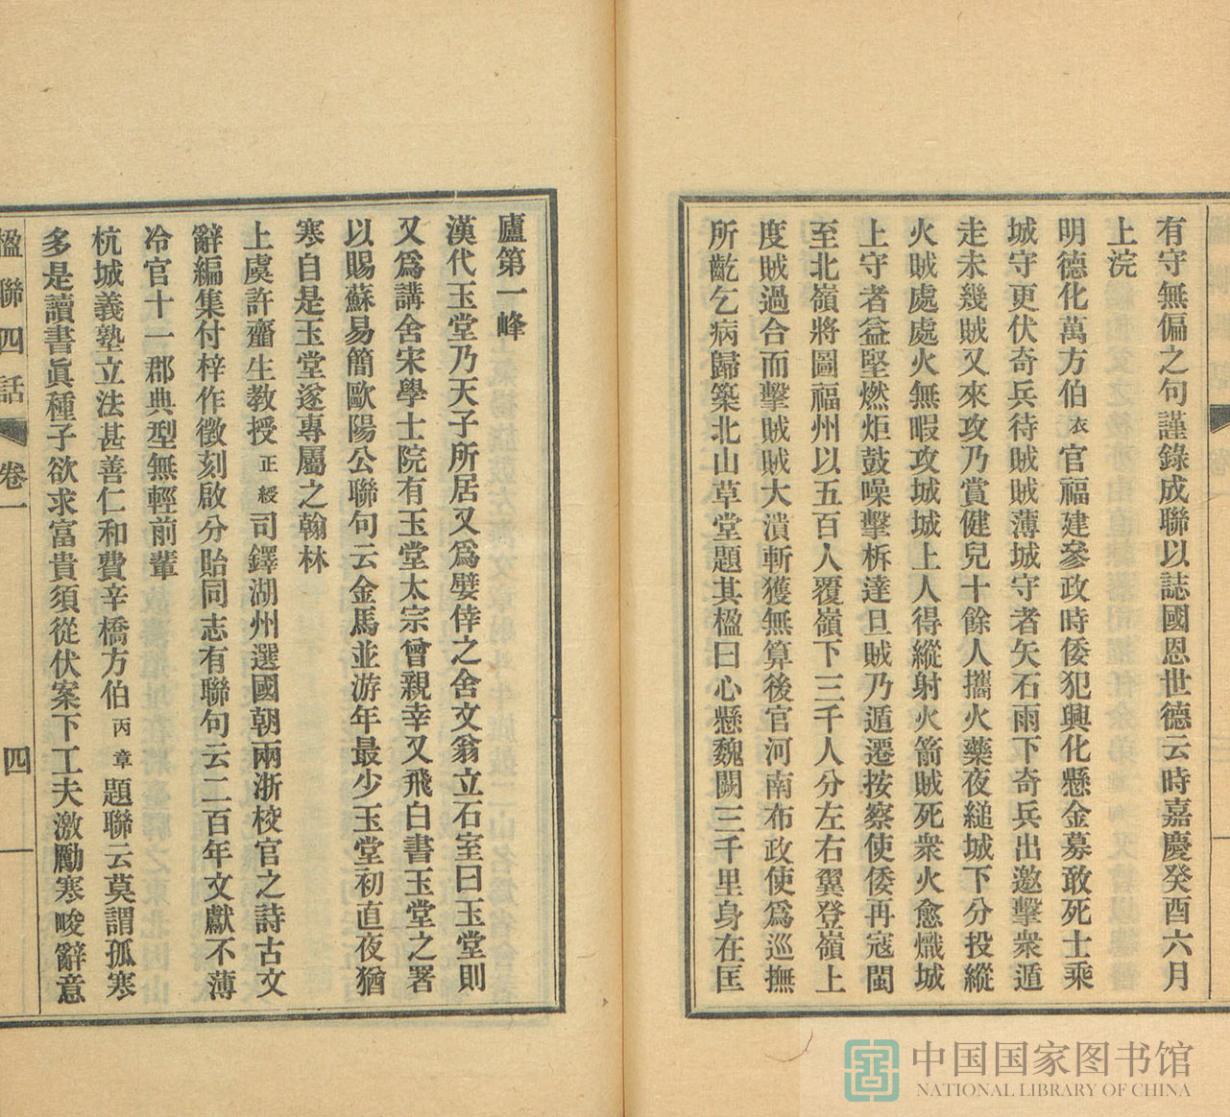 有守無偏之句謹錄成聯以誌國恩世德云時嘉慶癸酉六月
上浣
明德化萬方伯衣官福建參政時倭犯興化懸金募敢死士乘
城守更伏奇兵待賊賊薄城守者矢石雨下奇兵出邀擊衆遁
走未幾賊又來攻乃賞健兒十餘人攜火藥夜縋城下分投縱
火賊處處火無暇攻城城上人得縱射火箭賊死衆火愈熾城
上守者益堅燃炬鼓噪擊柝達旦賊乃遁遷按察使倭再寇閩
至北嶺將圖福州以五百人覆嶺下三千人分左右翼登嶺上
度賊過合而擊賊賊大潰斬獲無算後官河南布政使爲巡撫
所齕乞病歸築北山草堂題其楹曰心懸魏闕三千里身在匡
廬第一峰
漢代玉堂乃天子所居又爲嬖倖之舍文翁立石室曰玉堂則
又爲講舍宋學士院有玉堂太宗曾親幸又飛白書玉堂之署
以賜蘇易簡歐陽公聯句云金馬並游年最少玉堂初直夜猶
寒自是玉堂遂專屬之翰林
上虞許齋生教授正綬司鐸湖州選國朝兩浙校官之詩古文
辭編集付梓作徵刻啟分貽同志有聯句云二百年文獻不薄
冷官十一郡典型無輕前輩
杭城義塾立法甚善仁和費辛橋方伯丙章題聯云莫謂孤寒
多是讀書眞種子欲求富貴須從伏案下工夫激勵寒畯辭意
楹聯四話 卷一 四
中国国家图书馆
NATIONAL LIBRARY OF CHINA